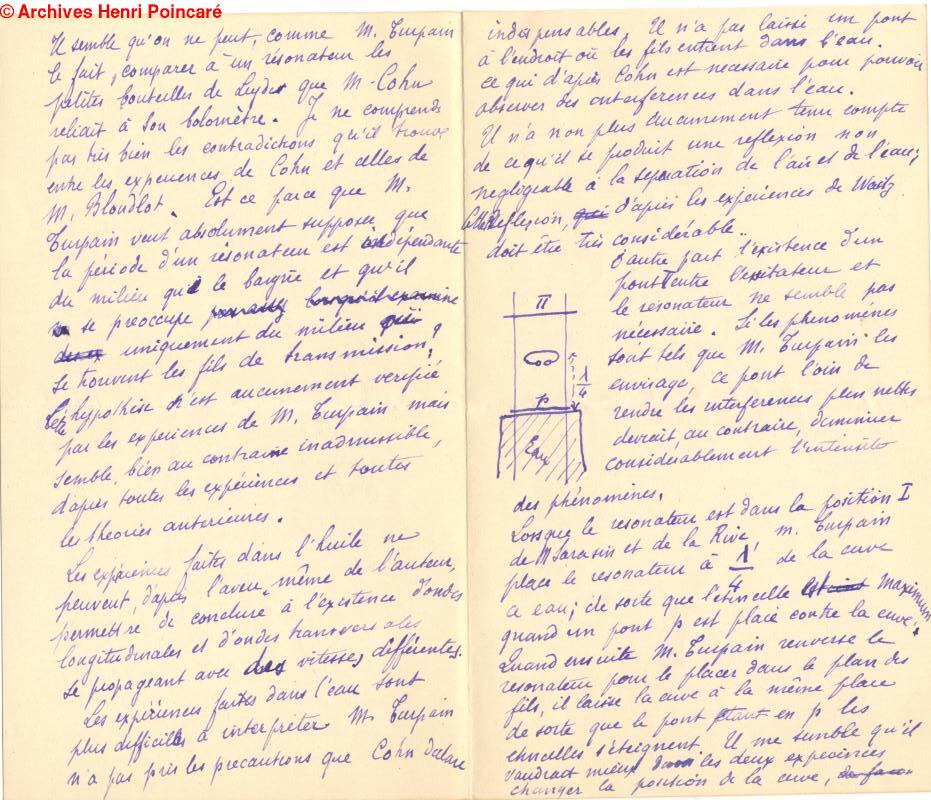 © Archives Henri Poincaré
Il semble qu'on ne peut, comme M. Turpain
le fait, comparer à un résonateur les
petites bouteilles de Leyde que M. Cohn
reliait à son bolomètre. Je ne comprends
pas très bien les contradictions qu'il trouve
entre les expériences de Cohn et celles de
M. Blondlot. Est ce parce que M.
Turpain veut absolument supposer que
la période d'un résonateur est indépendante
du milieu qui le baigne et qu'il
se préoccupe lorsqu'il examine
uniquement du milieu où
se trouvent les fils de transmission?
Cette hypothèse n'est aucunement verifié
par les expériences de M. Turpain mais
semble, bien au contraire inadmissible,
d'après toutes les expériences et toutes
les théories anterieures.
Les expériences faites dans l'huile ne
peuvent, d'après l'aveu même de l'auteur,
permettre de conclure à l'existence d'ondes
longitudinales et d'ondes transversales
se propageant avec des vitesses différentes.
Les expériences faites dans l'eau sont
plus difficiles à interpréter M. Turpain
n'a pas pris les precautions que Cohn declare
indispensables. Il n'a pas laissé un pont
à l'endroit où les fils entrent dans l'eau.
ce qui d'après Cohn est necessaire pour pouvoir
observer des interférences dans l'eau.
Il n'a non plus aucunement tenu compte
de ce qu'il se produit une reflexion non
negligeable à la separation de l'air et de l'eau;
cette reflexion, qui d'après les expériences de Waitz
doit être très considérable.
D'autre part l'existence d'un
pont entre l'excitateur et
le résonateur ne semble pas
nécessaire. Si les phenomènes
sont tels que M. Turpain les
envisage, ce pont loin de
rendre les interferences plus nettes
devrait au contraire, diminuer
considérablement l'intensité
des phénomènes.
π
λ/4
p
Eau
Lorsque le resonateur est dans la position I
de M Sarasin et de la Rive, M. Turpain
place le resonateur à λ/4 de la cuve
à eau; de sorte que l'étincelle est maximum
quand un pont p est placé contre la cuve.
Quand ensuite M. Turpain renverse le
resonateur pour le placer dans le plan des
fils, il laisse la cuve à la même place
de sorte que le pont étant en p les
étincelles s'éteignent. Il me semble qu'il
vaudrait mieux dans les deux expeiences
changer la position de la cuve, de facon